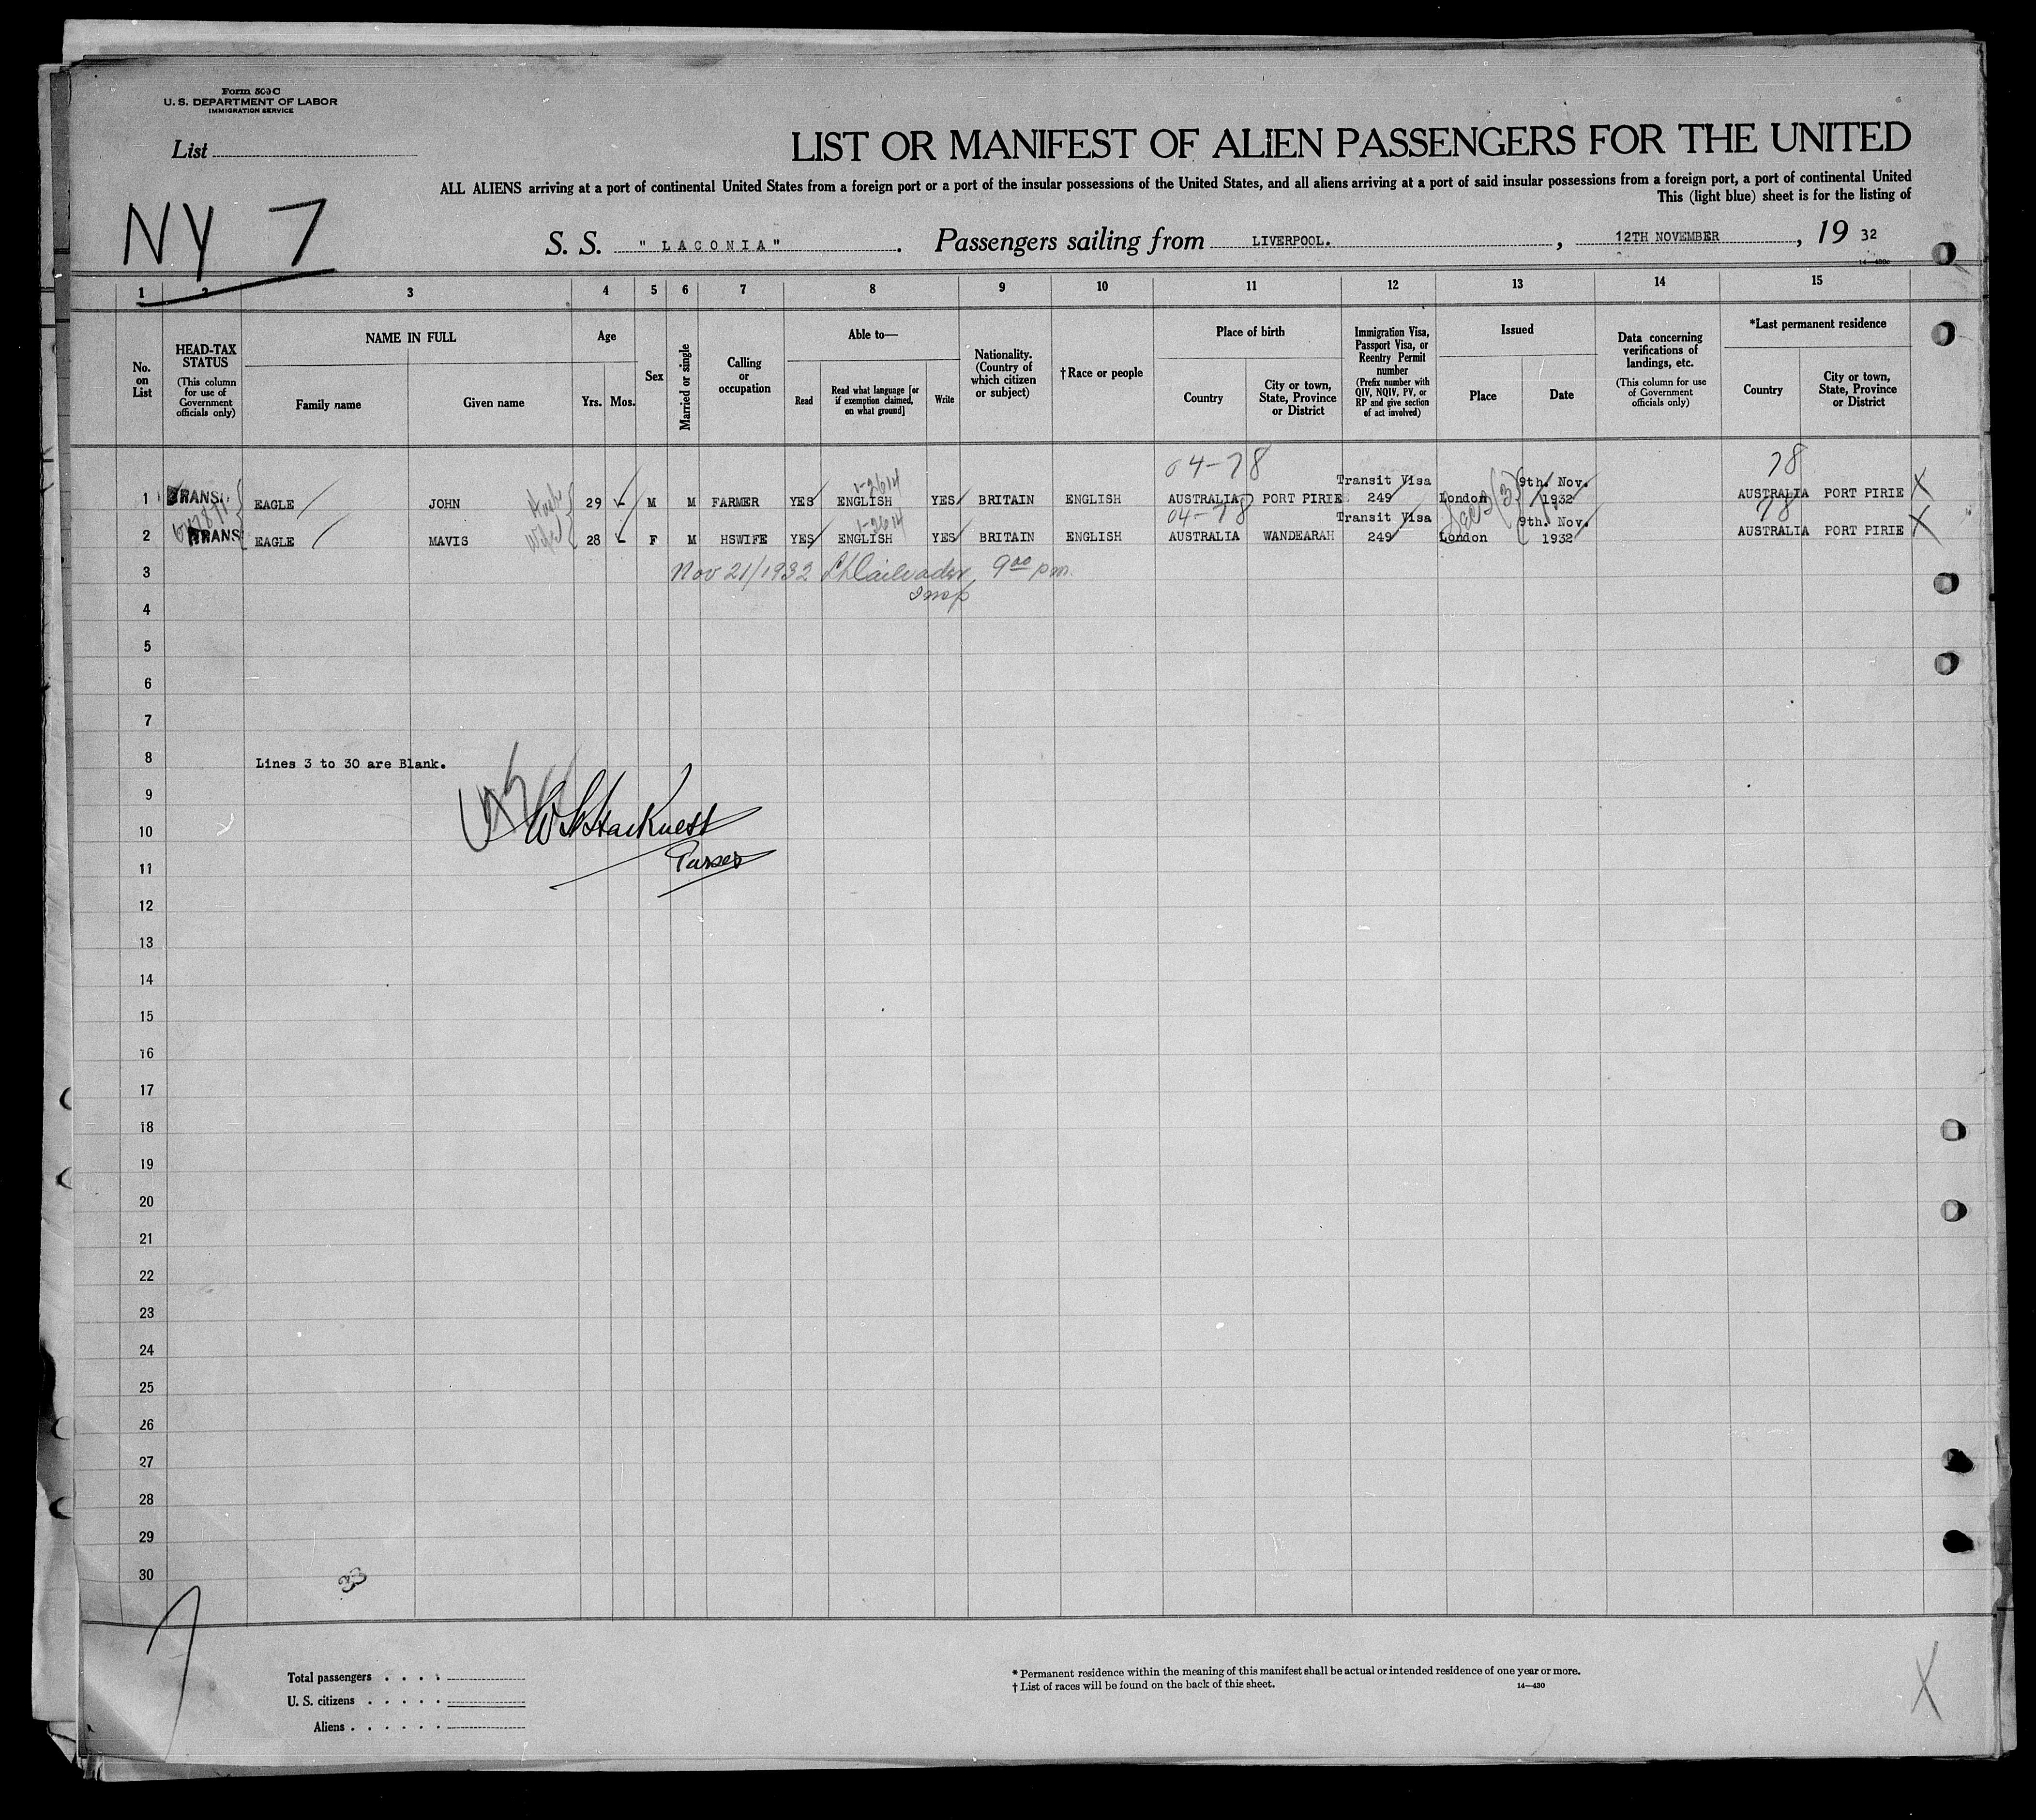 Form 500 C
U. S. DEPARTMENT OF LABOR
IMMIGRATION SERVICE
List
LIST OR MANIFEST OF ALIEN PASSENGERS FOR THE UNITED
ALL ALIENS arriving at a port of continental United States from a foreign port or a port of the insular possessions of the United States, and all aliens arriving at a port of said insular possessions from a foreign port, a port of continental United
This (light blue) sheet is for the listing of
NY 7
S. S. " LACONIA" . Passengers sailing from LIVERPOOL. , 12TH NOVEMBER , 19 32
14—430c
1 2 3 4 5 6 7 8 9 10 11 12 13 14 15
No. on List
HEAD-TAX STATUS (This column for use of Government officials only)
NAME IN FULL
Family name Given name
Age
Yrs. Mos.
Sex
Married or single
Calling or occupation
Able to—
Read Read what language [or if exemption claimed, on what ground] Write
Nationality. (Country of which citizen or subject)
†Race or people
Place of birth
Country City or town, State, Province or District
Immigration Visa, Passport Visa, or Reentry Permit number (Prefix number with QIV, NQIV, PV, or RP and give section of act involved)
Issued
Place Date
Data concerning verifications of landings, etc. (This column for use of Government officials only)
*Last permanent residence
Country City or town, State, Province or District
04-78 78
1-2614 Transit Visa 9th. Nov.
1 TRANS. EAGLE JOHN 29 M M FARMER YES ENGLISH YES BRITAIN ENGLISH AUSTRALIA PORT PIRIE 249 London 1932 AUSTRALIA PORT PIRIE X
Sec 3 (3)
1-2614 04-78 Transit Visa 9th. Nov. 78
2 TRANS EAGLE MAVIS Wife 28 F M HSWIFE YES ENGLISH YES BRITAIN ENGLISH AUSTRALIA WANDEARAH 249 London 1932 AUSTRALIA PORT PIRIE X
3 Nov 21/1932 9⁰⁰ pm.
Insp
4
5
6
7
8 Lines 3 to 30 are Blank.
9
10
Purser
11
12
13
14
15
16
17
18
19
20
21
22
23
24
25
26
27
28
29
30
33
7
Total passengers . . . .
U. S. citizens . . . . .
Aliens . . . . . .
* Permanent residence within the meaning of this manifest shall be actual or intended residence of one year or more.
† List of races will be found on the back of this sheet. 14—430
X